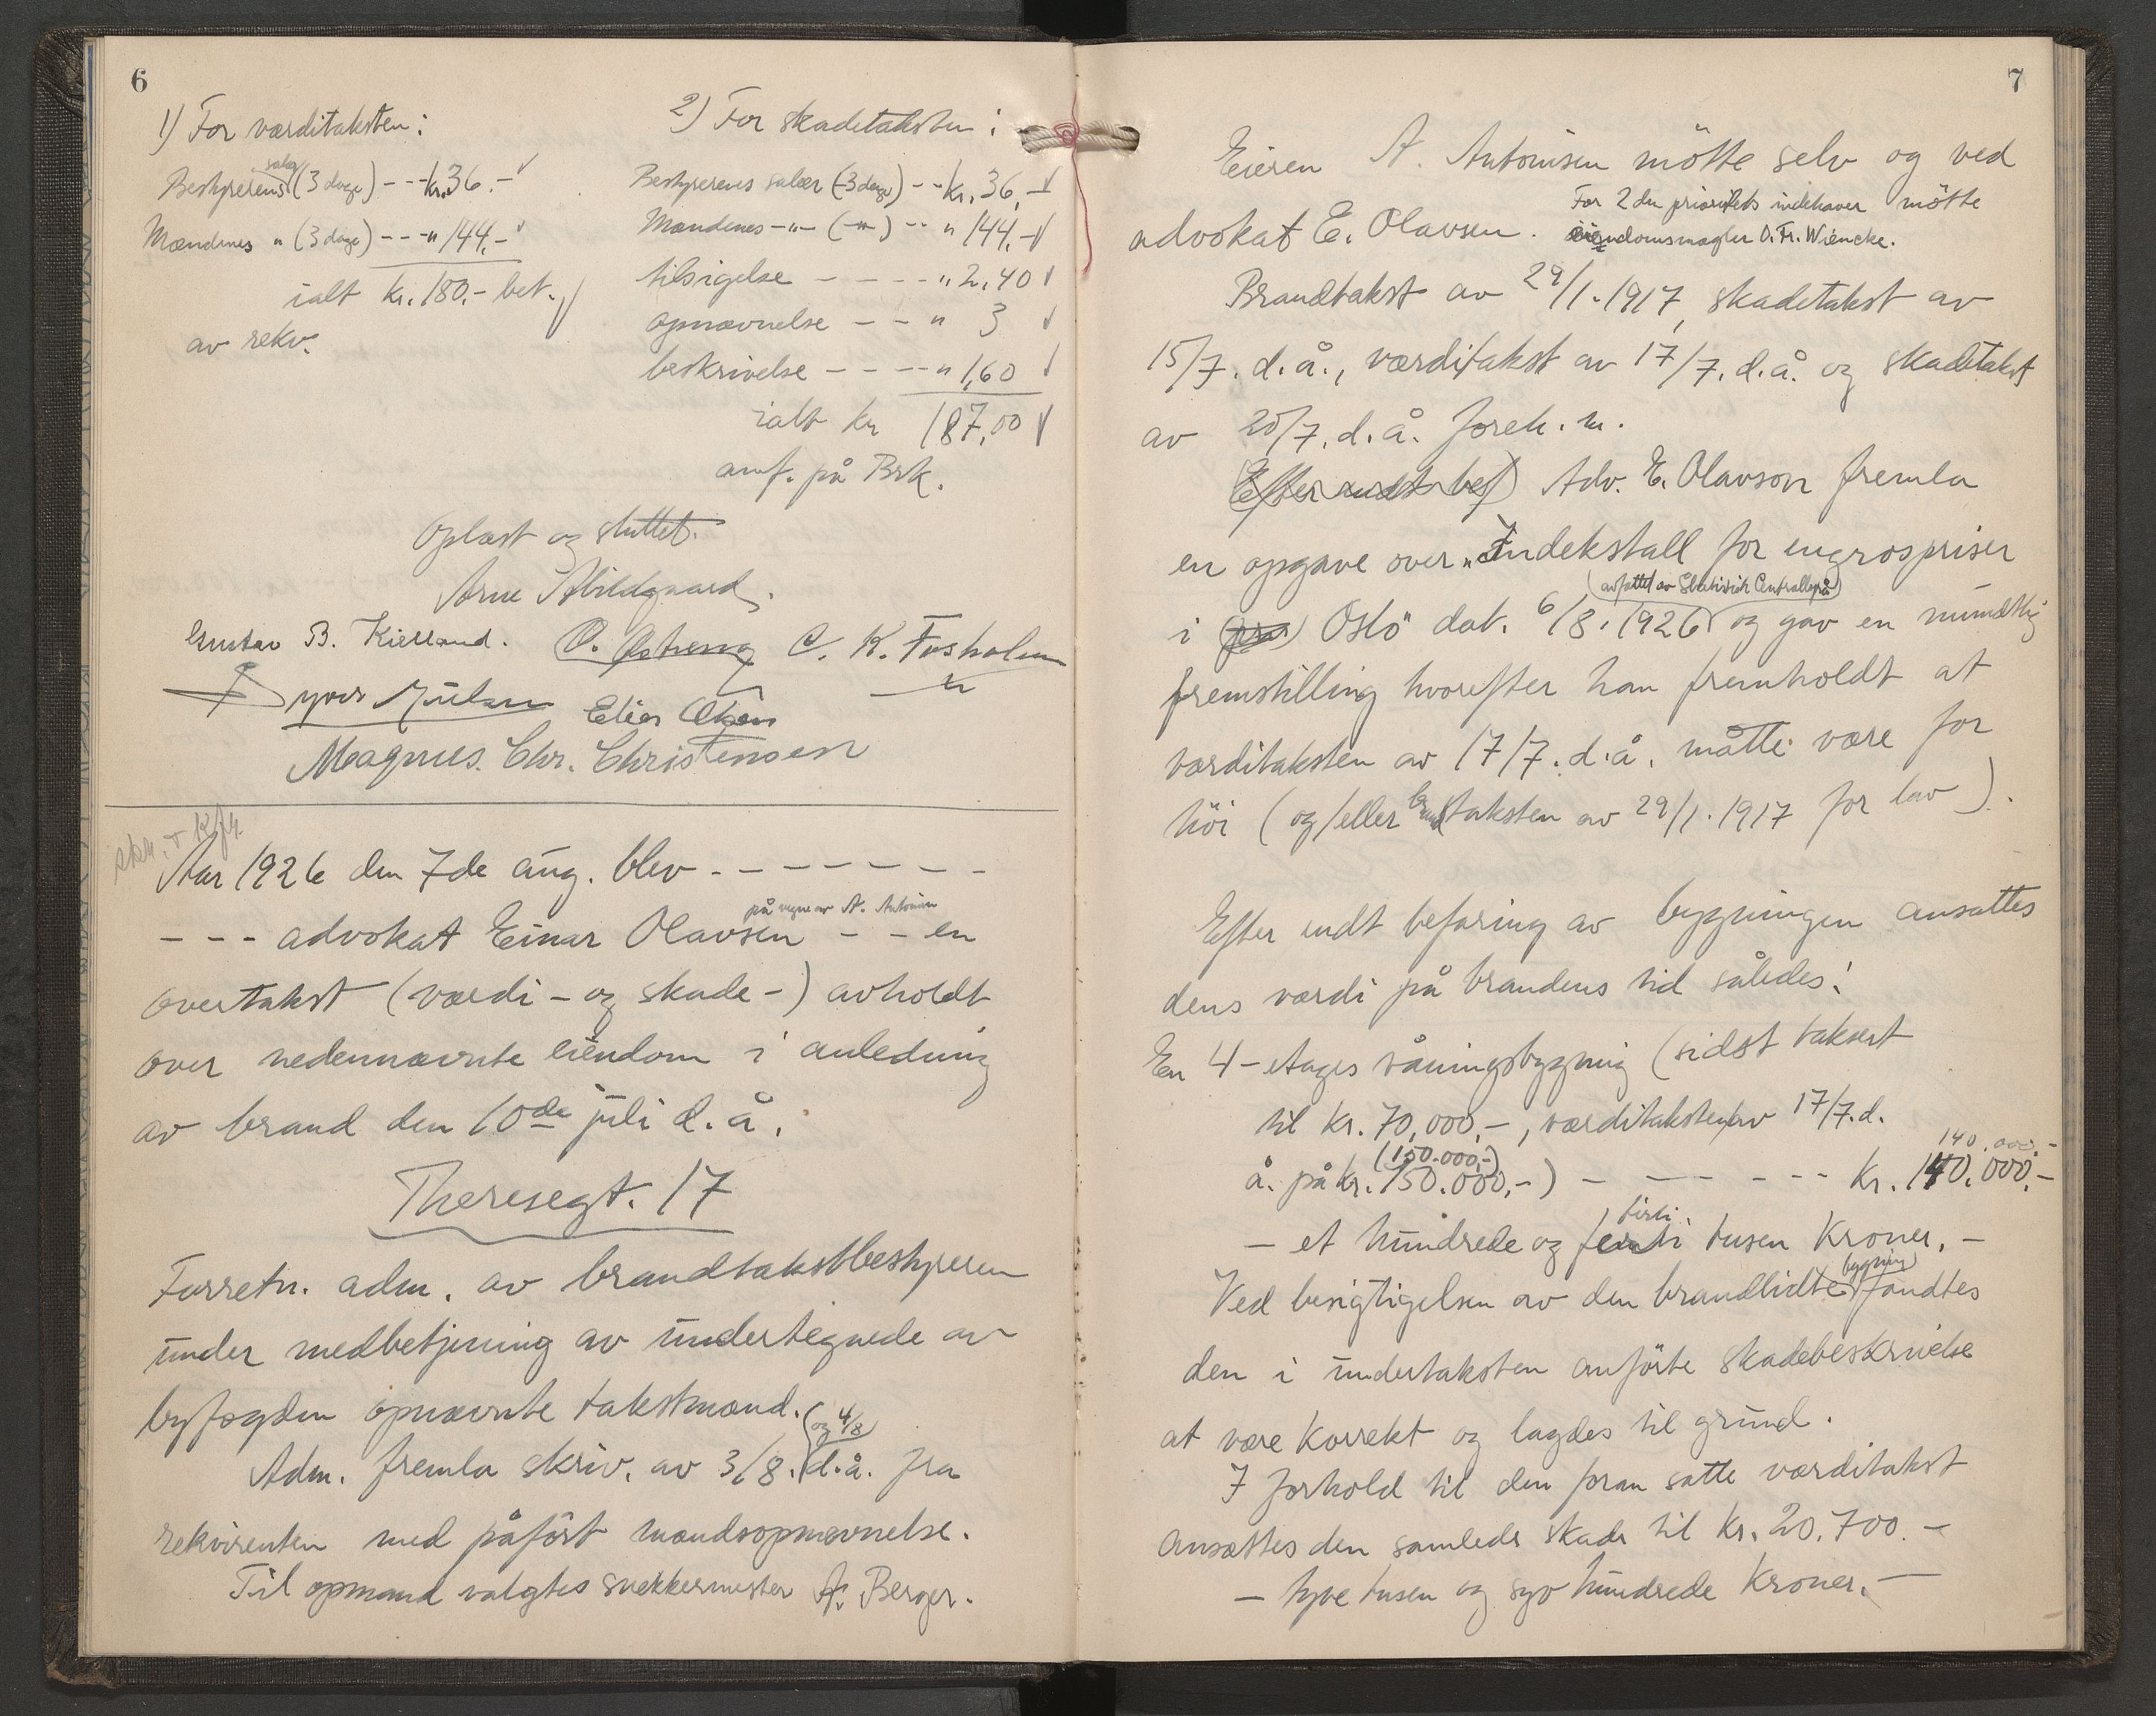 6
1) For værditaksten:
Bestyrerens salær (3 dage) - - - kr. 36.-
Mændenes " (3 dage) - - - " 144.-
ialt kr. 180.- bet.
av rekv.
2) For skadetaksten:
Bestyrerens salær (3 dage) - - kr. 36,-
Mændenes - " - ( - " - ) - - " 144.-
tilsigelse - - - - - " 2,40
opnævnelse - - - " 3
beskrivelse - - - - " 1,60
ialt kr 187,00
anf. på Brk.
Oplæst og sluttet.
Arne Abildgaard.
Gustav B. Kielland. O. C. K. Fosholm
Elias Olsen
Magnus. Chr. Christensen
skr. + Kfr.
Aar 1926 den 7de aug. blev - - - - - -
på vegne av A. Antonisen
- - - advokat Einar Olavsen - - en
overtakst (værdi- og skade-) avholdt
over nedennævnte eiendom i anledning
av brand den 10de juli d.å.
Theresegt. 17
Forretn. adm. av brandtakstbestyreren
under medbetjening av undertegnede av
byfogden opnævnte takstmænd.
Adm. fremla skriv. av 3/8. (og 4/8) d.å. fra
rekvirenten med påført mandsopnævnelse.
Til opmand valgtes snekkermester A. Berger.
7
Eieren A. Antonisen mötte selv og ved
advokat E. Olavsen. For 2den prioritets indehaver mötte
eiendomsmægler O. Fr. Wiencke.
Brandtakst av 29/1.1917, skadetakst av
15/7. d.å., værditakst av 17/7. d.å. og skadetakst
av 20/7. d.å. forel. m.
(Efter endt bef) Adv. E. Olavson fremla
en opgave over "Indekstall for engrospriser
(avfattet av Statistisk Centralbyrå)
i (fra) Oslo" dat. 6/8.1926 og gav en mundtlig
fremstilling hvorefter han fremholdt at
værditaksten av 17/7. d.å. måtte være for
höi (og/eller brandtaksten av 29/1.1917 for lav).
Efter endt befaring av bygningen ansattes
dens værdi på brandens tid således:
En 4-etages våningsbygning (sidst taksert
til kr. 70,000,-, værditaksten av 17/7. d.
(150.000,-) 140.000,-
å. på kr. 150.000,-) - - - - - - kr. 140.000,-
firti
- et hundrede og femti tusen Kroner. -
Ved besigtigelsen av den brandlidte (bygning) fandtes
den i undertaksten anförte skadebeskrivelse
at være korrekt og lagdes til grund.
I forhold til den foran satte værditakst
ansættes den samlede skade til kr. 20.700.-
- tyve tusen og syv hundrede Kroner. -